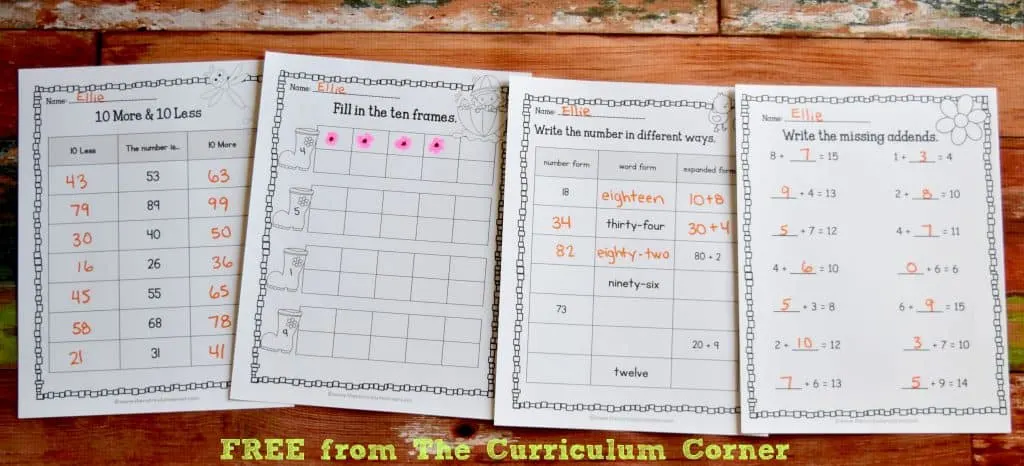 Name: Ellie
10 More & 10 Less
10 Less The number is... 10 More
43 53 63
79 89 99
30 40 50
16 26 36
45 55 65
58 68 78
21 31 41
Name: Ellie
Fill in the ten frames.
4
5
1
9
Name: Ellie
Write the number in different ways.
number form word form expanded form
18 eighteen 10+8
34 thirty-four 30+4
82 eighty-two 80 + 2
ninety-six
73
20 + 9
twelve
Name: Ellie
Write the missing addends.
8 + 7 = 15 1 + 3 = 4
9 + 4 = 13 2 + 8 = 10
5 + 7 = 12 4 + 7 = 11
4 + 6 = 10 0 + 6 = 6
5 + 3 = 8 6 + 9 = 15
2 + 10 = 12 3 + 7 = 10
7 + 6 = 13 5 + 9 = 14
FREE from The Curriculum Corner